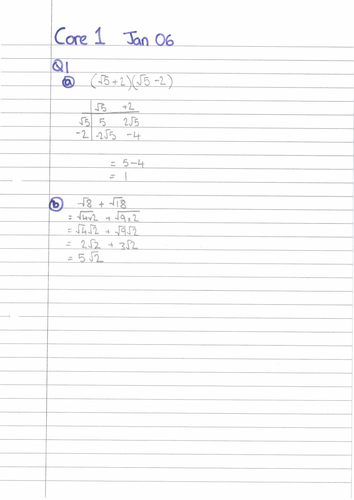 Core 1 Jan 06
Q1
a (√5+2)(√5-2)
√5 +2
√5 5 2√5
-2 -2√5 -4
= 5-4
= 1
b √8 + √18
= √4×2 + √9×2
= √4√2 + √9√2
= 2√2 + 3√2
= 5√2